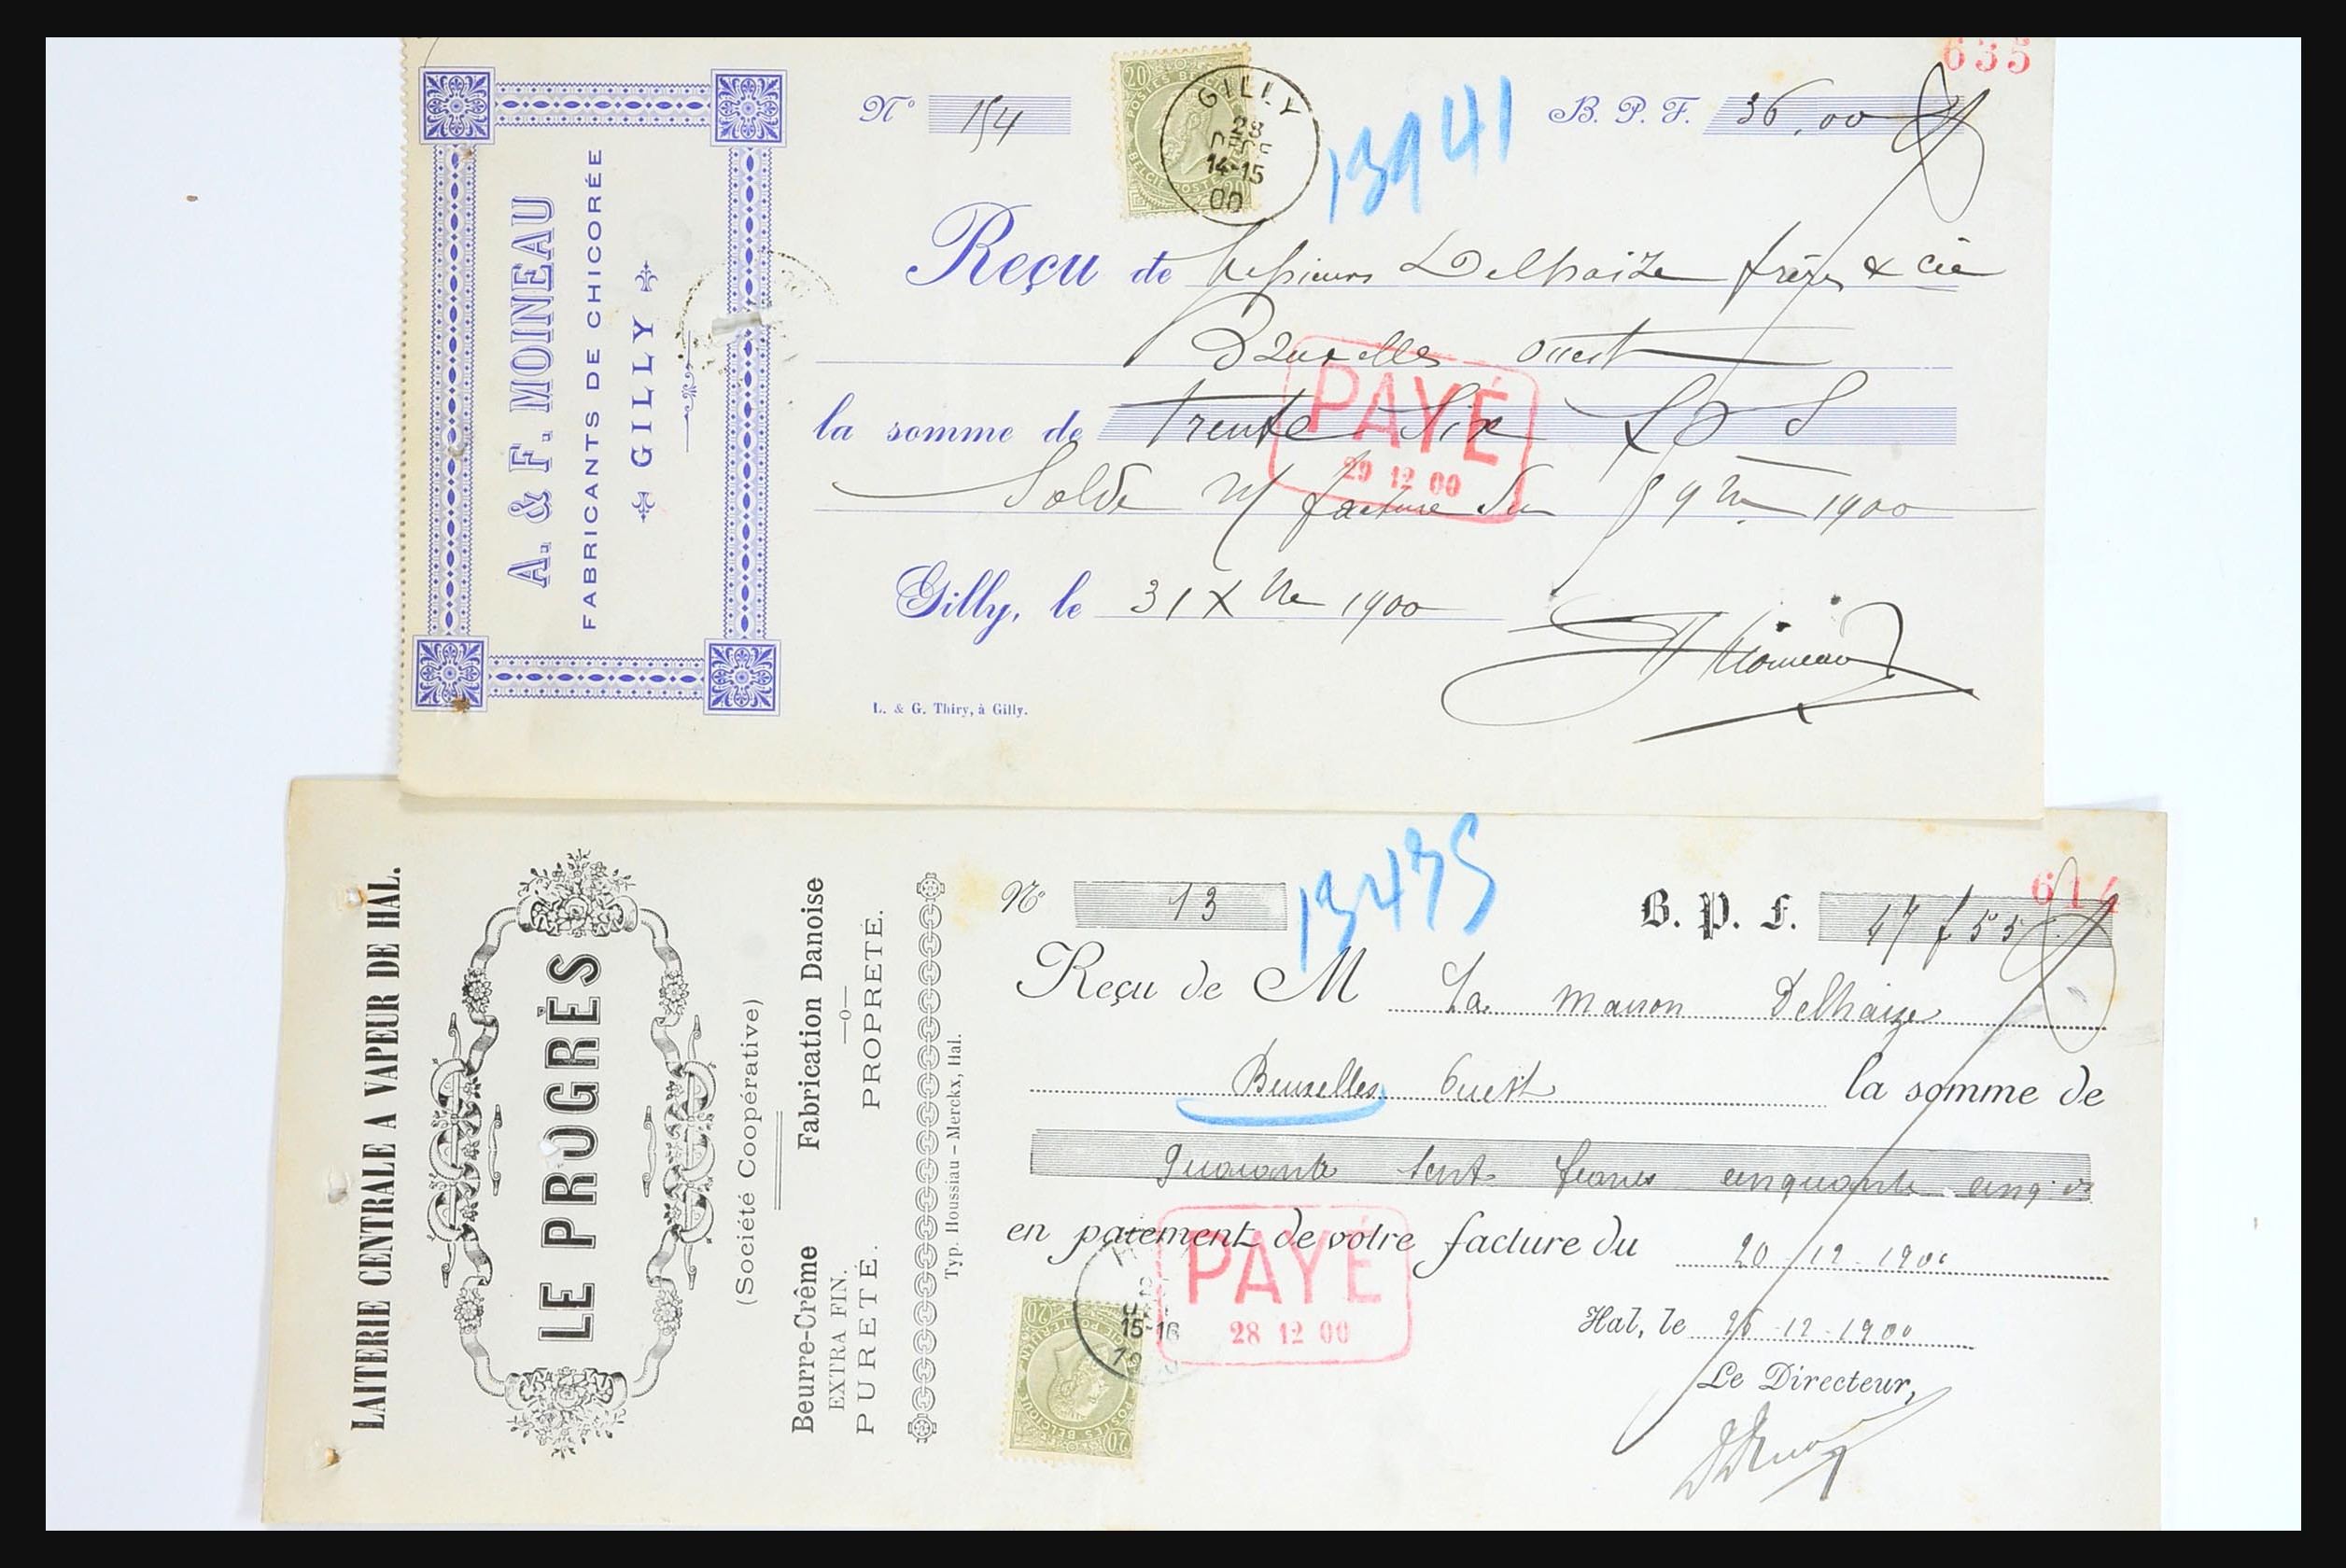 635
A. & F. MOINEAU
FABRICANTS DE CHICORÉE
GILLY
Nº 154
20 POSTES BELGIQUE
BELGIE POSTERIJEN 20
GILLY
28
DECE
14-15
00
13941
B. P. F. 36,00
Reçu de Messieurs Delhaize frères & Cie
Bruxelles Ouest
la somme de trente six
PAYÉ
29 12 00
Solde n/ facture du 5 9bre 1900
Gilly, le 31 Xbre 1900
F Moineau
L. & G. Thiry, à Gilly.
LAITERIE CENTRALE A VAPEUR DE HAL.
LE PROGRÈS
(Société Coopérative)
Beurre-Crême Fabrication Danoise
EXTRA FIN. —o—
PURETÉ. PROPRETÉ.
Typ. Houssiau-Merckx, Hal.
Nº 13
13475
B. P. F. 47 f 55
614
Reçu de M La maison Delhaize
Bruxelles Ouest la somme de
quarante sept francs cinquante cinq cs
en paiement de votre facture du 20-12-1900
PAYÉ
28 12 00
15-16
20 POSTES BELGIQUE
BELGIE POSTERIJEN 20
Hal, le 26-12-1900
Le Directeur,